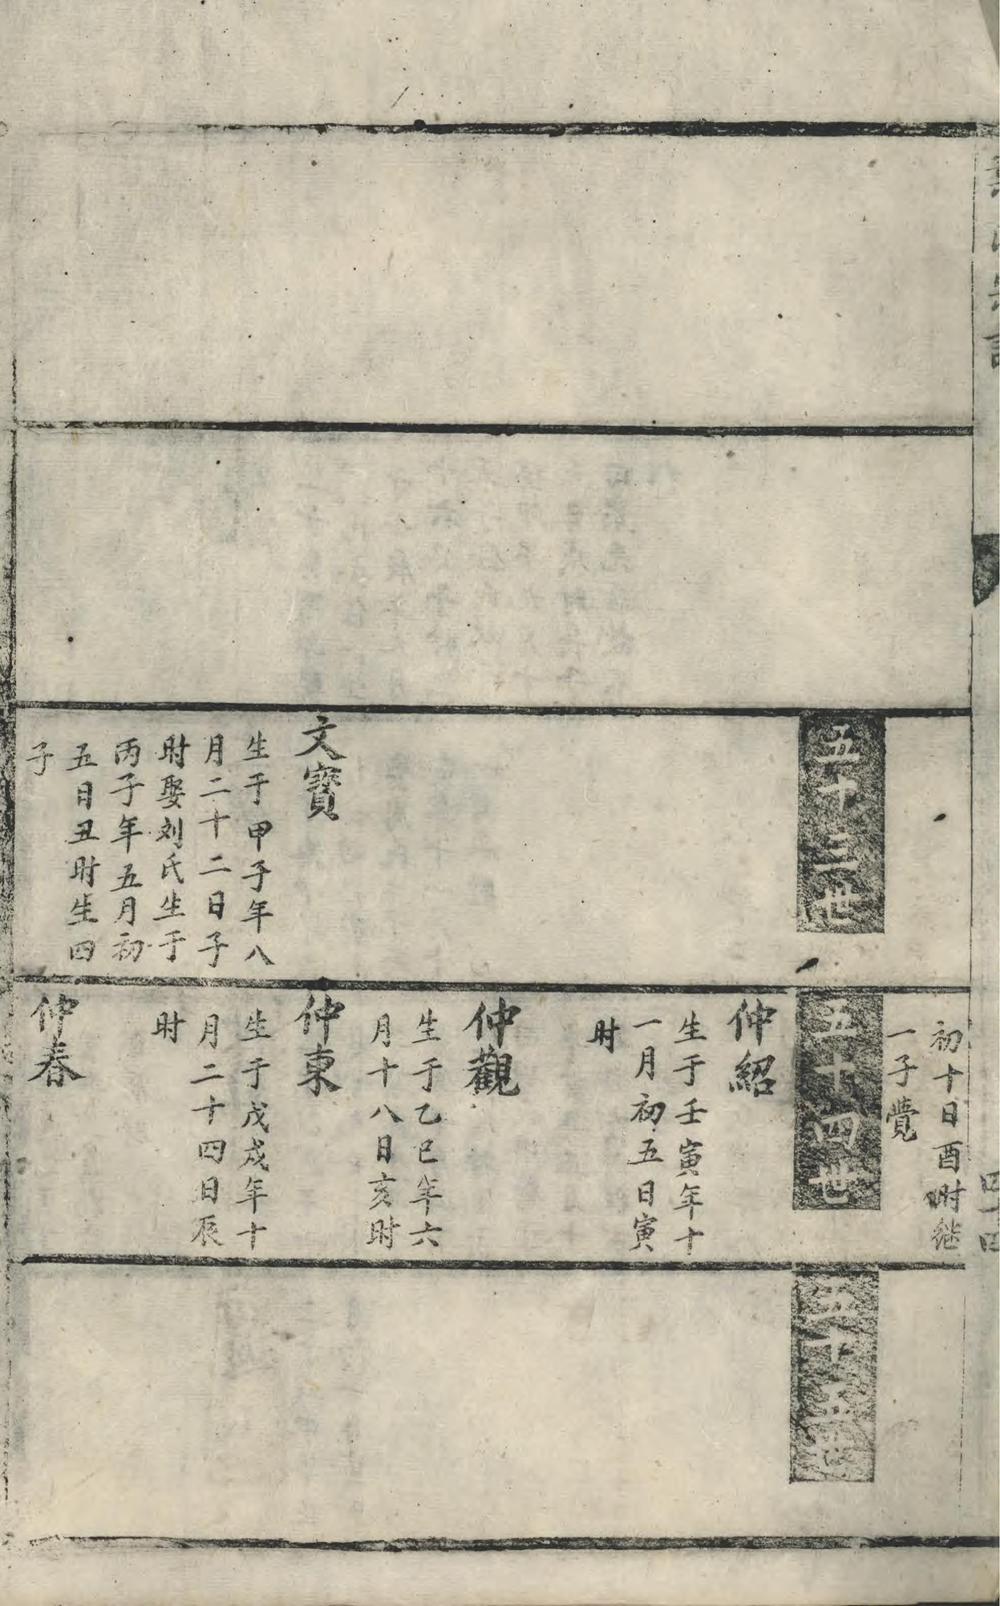 五十三世
文寳
生于甲子年八
月二十二日子
时娶刘氏生于
丙子年五月初
五日丑时生四
子
初十日酉时继
一子覺
五十四世
仲紹
生于壬寅年十
一月初五日寅
时
仲觀
生于乙巳年六
月十八日亥时
仲東
生于戊戌年十
月二十四日辰
时
仲春
五十五世